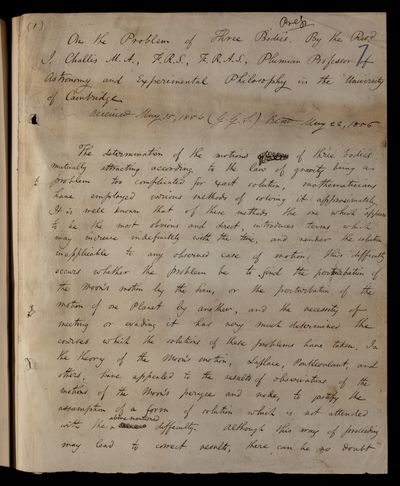 (1)
Prof.
On the Problem of Three Bodies. By the Revd.
7
J. Challis M.A., F.R.S., F.R.A.S., Plumian Professor of
Astronomy and Experimental Philosophy in the University
of Cambridge
Received May 15, 1856 (G.G.S.) Read May 22, 1856
The determination of the motions of three bodies
mutually attracting according to the law of gravity being a
problem too complicated for exact solution, mathematicians
have employed various methods of solving it approximately.
It is well known that of these methods the one which appears
to be the most obvious and direct, introduces terms which
may increase indefinitely with the time, and render the solution
inapplicable to any observed case of motion. This difficulty
occurs whether the problem be to find the perturbation of
the Moon's motion by the Sun, or the perturbation of the
motion of one Planet by another, and the necessity of
meeting or evading it has very much determined the
courses which the solutions of these problems have taken. In
the theory of the Moon's motion, Laplace, Pontécoulant, and
others, have appealed to the results of observations of the
motions of the Moon's perigee and node, to justify the
assumption of a form of solution which is not attended
above mentioned
with the difficulty. Although this way of proceeding
may lead to correct results, there can be no doubt